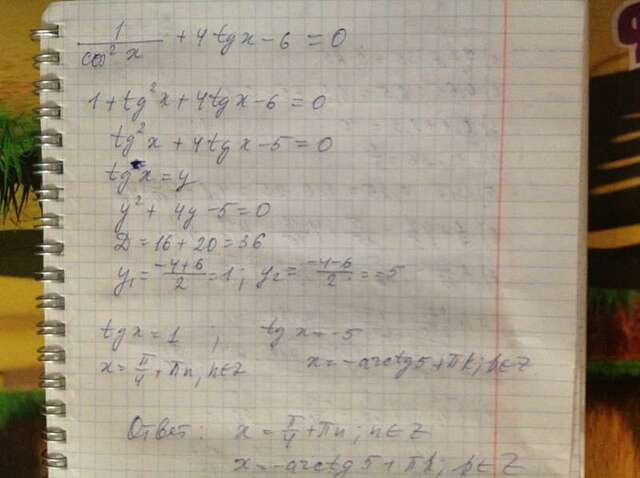 1/cos²x + 4tgx - 6 = 0
1 + tg²x + 4tgx - 6 = 0
tg²x + 4tgx - 5 = 0
tgx = y
y² + 4y - 5 = 0
D = 16 + 20 = 36
y₁ = (-4+6)/2 = 1; y₂ = (-4-6)/2 = -5
tgx = 1 ; tgx = -5
x = π/4 + πn; n∈Z x = -arctg5 + πk; k∈Z
Ответ: x = π/4 + πn; n∈Z
x = -arctg5 + πk; k∈Z
Ь